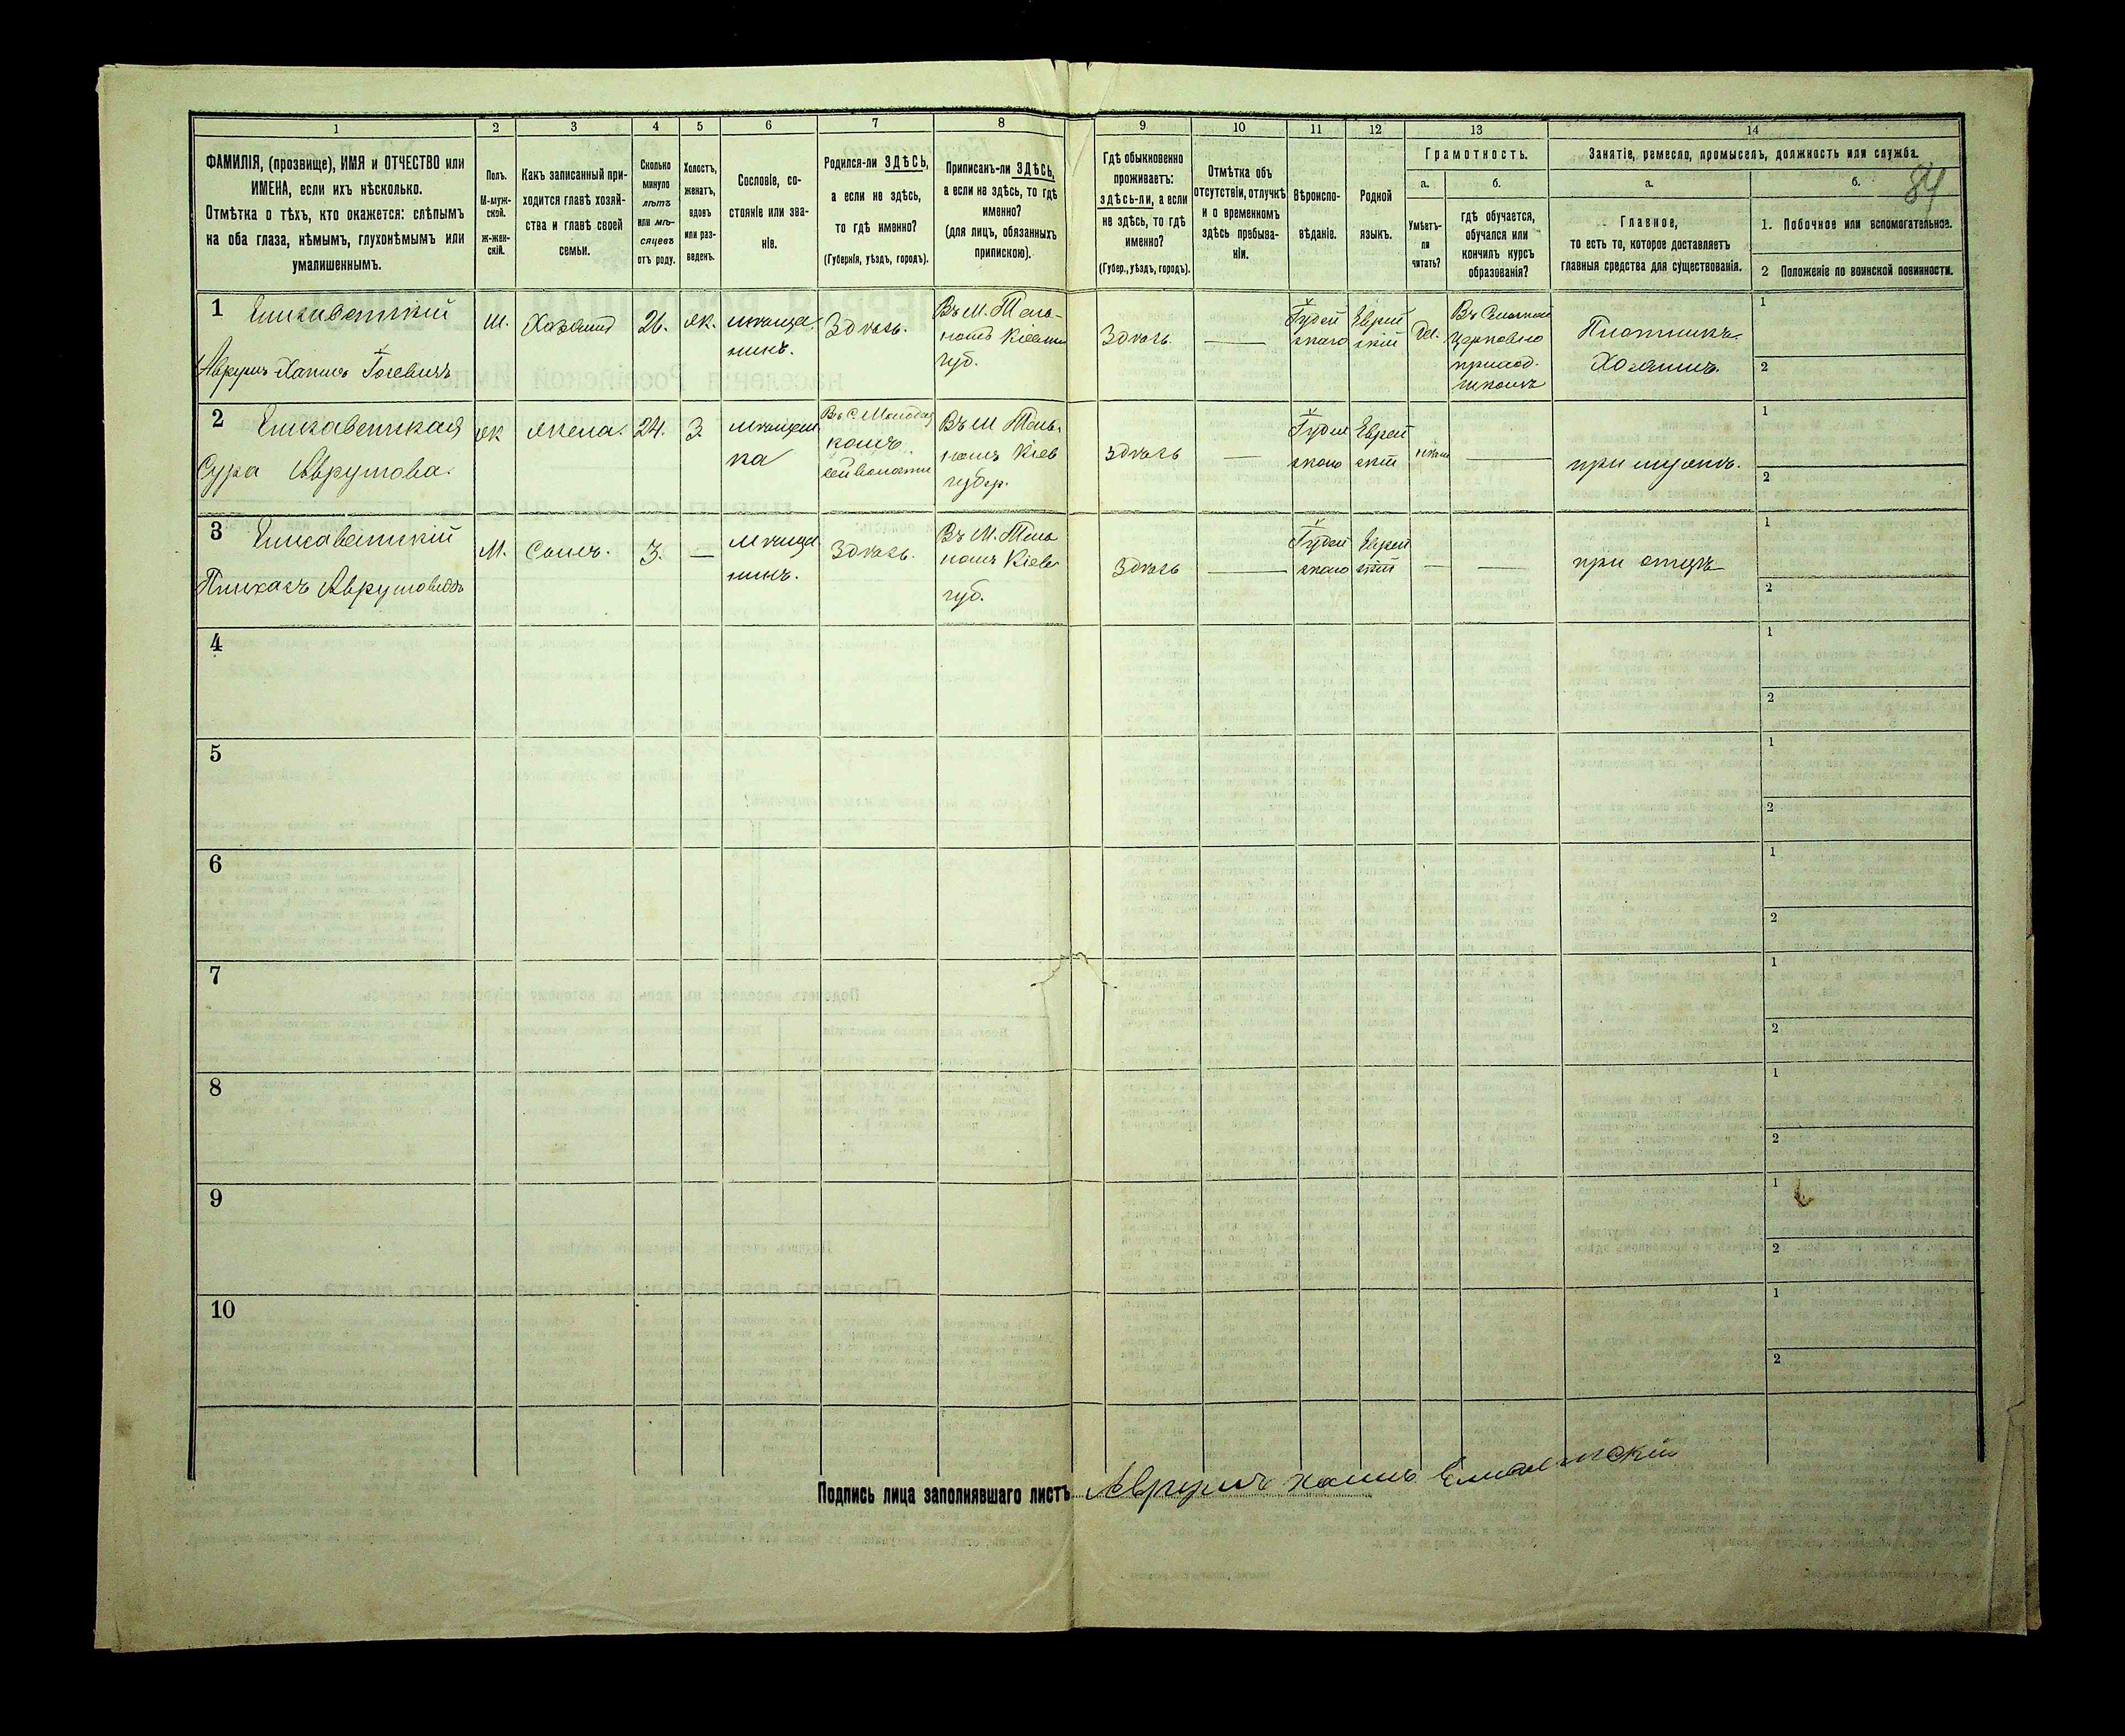 1 2 3 4 5 6 7 8 9 10 11 12 13 14
ФАМИЛІЯ, (прозвище), ИМЯ и ОТЧЕСТВО или
ИМЕНА, если ихъ нѣсколько.
Отмѣтка о тѣхъ, кто окажется: слѣпымъ
на оба глаза, нѣмымъ, глухонѣмымъ или
умалишеннымъ.
Полъ.
М-муж-
ской.
ж-жен-
скій.
Какъ записанный при-
ходится главѣ хозяй-
ства и главѣ своей
семьи.
Сколько
минуло
лѣтъ
или мѣ-
сяцевъ
отъ роду.
Холостъ,
женатъ,
вдовъ
или раз-
веденъ.
Сословіе, со-
стояніе или зва-
ніе.
Родился-ли ЗДѢСЬ,
а если не здѣсь,
то гдѣ именно?
(Губернія, уѣздъ, городъ).
Приписанъ-ли ЗДѢСЬ,
а если не здѣсь, то гдѣ
именно?
(для лицъ, обязанныхъ
припискою).
Гдѣ обыкновенно
проживаетъ:
здѣсь-ли, а если
не здѣсь, то гдѣ
именно?
(Губер., уѣздъ, городъ).
Отмѣтка объ
отсутствіи, отлучкѣ
и о временномъ
здѣсь пребыва-
ніи.
Вѣроиспо-
вѣданіе.
Родной
языкъ.
Грамотность.
а.
Умѣетъ-
ли
читать?
б.
гдѣ обучается,
обучался или
кончилъ курсъ
образованія?
Занятіе, ремесло, промыселъ, должность или служба.
84
а.
Главное,
то есть то, которое доставляетъ
главныя средства для существованія.
б.
1. Побочное или вспомогательное.
2 Положеніе по воинской повинности.
1 Елисаветскій
Аврумъ Хаимъ Госевичъ
М.
Хозяинъ
26.
Ж.
мѣща
нинъ.
Здѣсь.
Въ М. Таль-
номъ Кіевской
губ.
Здѣсь
—
Іудей
скаго
Еврей
скій
Да.
церковно
приход.
Плотникъ.
Хозяинъ.
1
2
2 Елисаветская
Сура Аврумова.
Ж
Жена.
24.
З.
мѣщан
ка
Въ М Таль-
номъ Кіев
губер.
здѣсь
—
Іудей
скаго
Еврей
скій
—
при мужѣ.
1
2
3 Елисаветскій
Пинхасъ Аврумовичъ
М.
Сынъ.
3.
—
мѣща
нинъ.
Здѣсь.
Въ М. Таль
номъ Кіев
губ.
Здѣсь
—
Іудей
скаго
Еврей
скій
—
—
при отцѣ
1
2
4
1
2
5
1
2
6
1
2
7
1
2
8
1
2
9
1
2
10
1
2
Подпись лица заполнявшаго листъ Аврумъ Хаимъ Елисаветскій